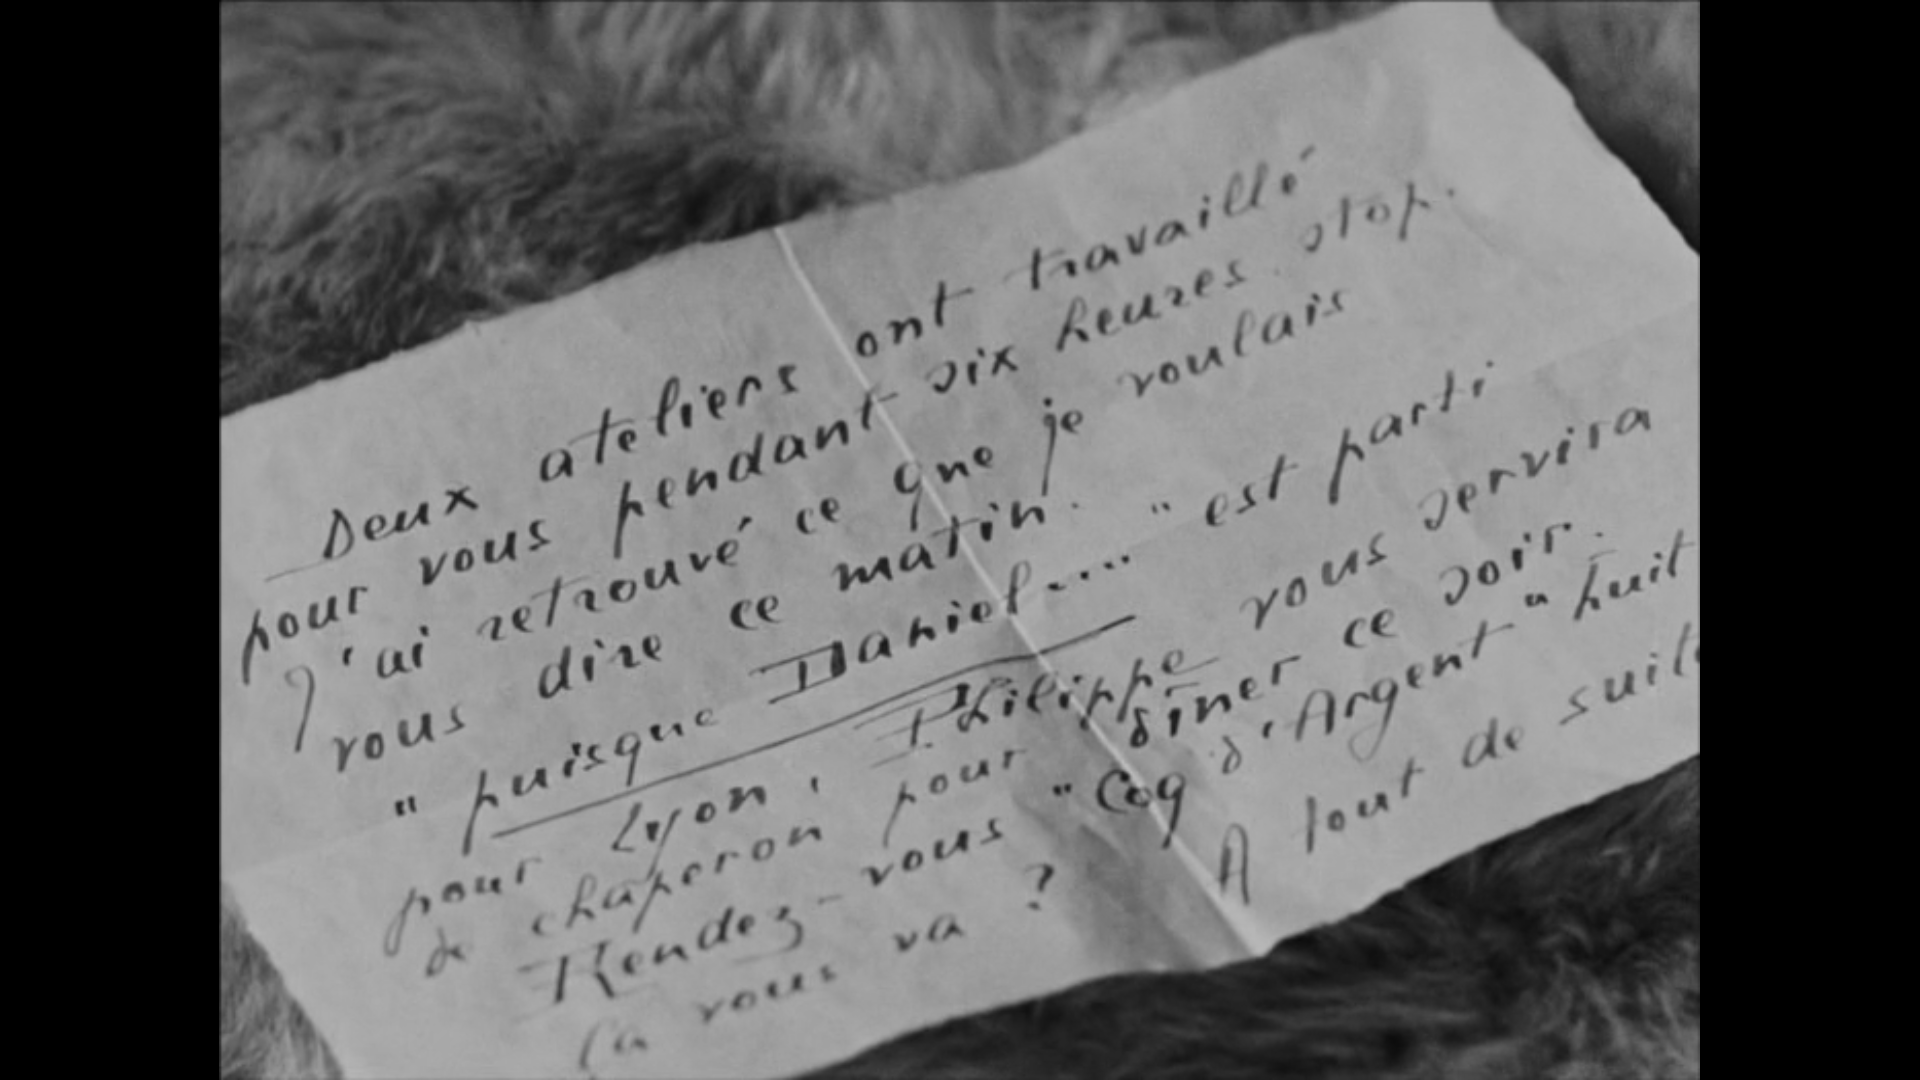 Deux ateliers ont travaillé
pour vous pendant six heures. stop.
J'ai retrouvé ce que je voulais
vous dire ce matin.
" puisque Daniel.... " est parti
pour Lyon, Philippe vous servira
de chaperon pour dîner ce soir.
Rendez-vous " Coq d'Argent " huit
Ça vous va ? A tout de suite